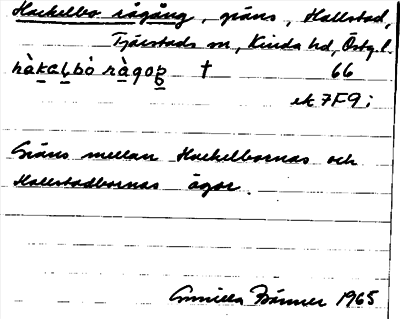 Hackelbo rågång, gräns, Hallstad,
Tjärstads sn, Kinda hd, Östg.l.
hàkaḷbò ràgoŋ † 66
ek 7F9i
Gräns mellan Hackelboernas och
Hallstadbornas ägor.
Gunilla 1965